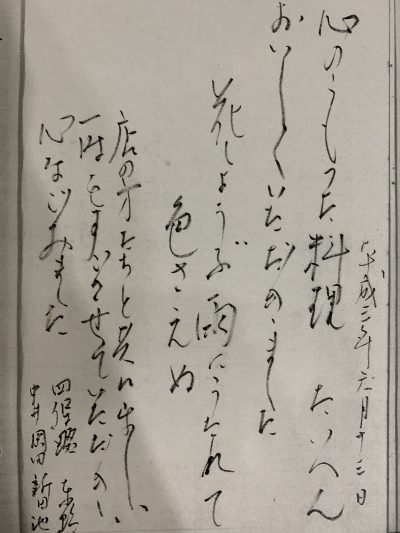 平成 年六月十三日
心のこもった料理 たいへん
おいしくいただきました
花しょうぶ雨にうたれて
色さえぬ
店の方たちと しい
一時をすごさせていただき
心なごみました
中井 岡田 新田 池